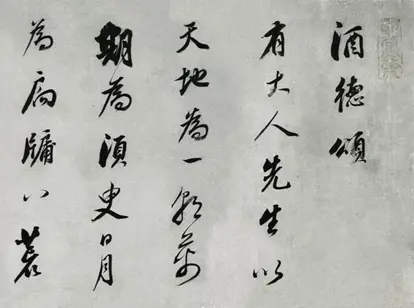 酒德頌
有大人先生以
天地為一朝萬
期為須臾日月
為扃牖八荒